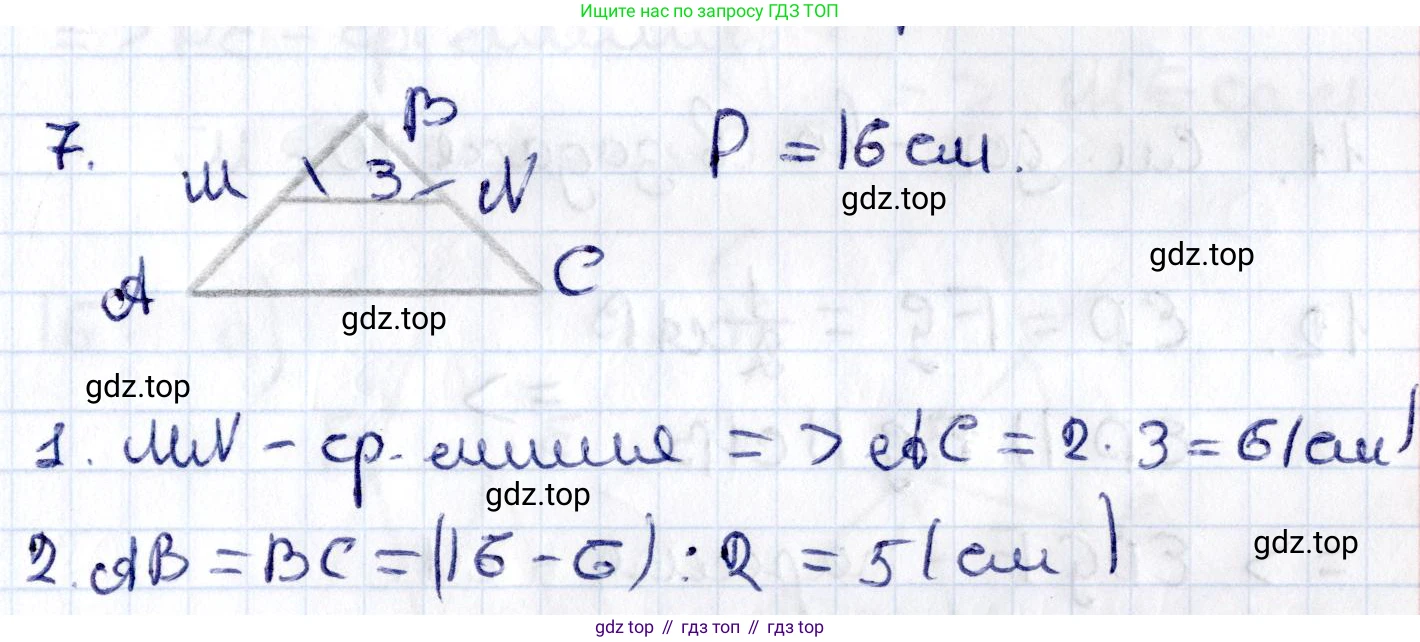 Ищите нас по запросу ГДЗ ТОП
7.
B
M
3
N
P = 16 см.
gdz.top
gdz.top
A
C
gdz.top
gdz.top
1. MN - ср. линия => AC = 2 · 3 = 6 (см)
gdz.top
2. AB = BC = (16 - 6) : 2 = 5 (см)
gdz.top
gdz top // гдз топ // гдз top